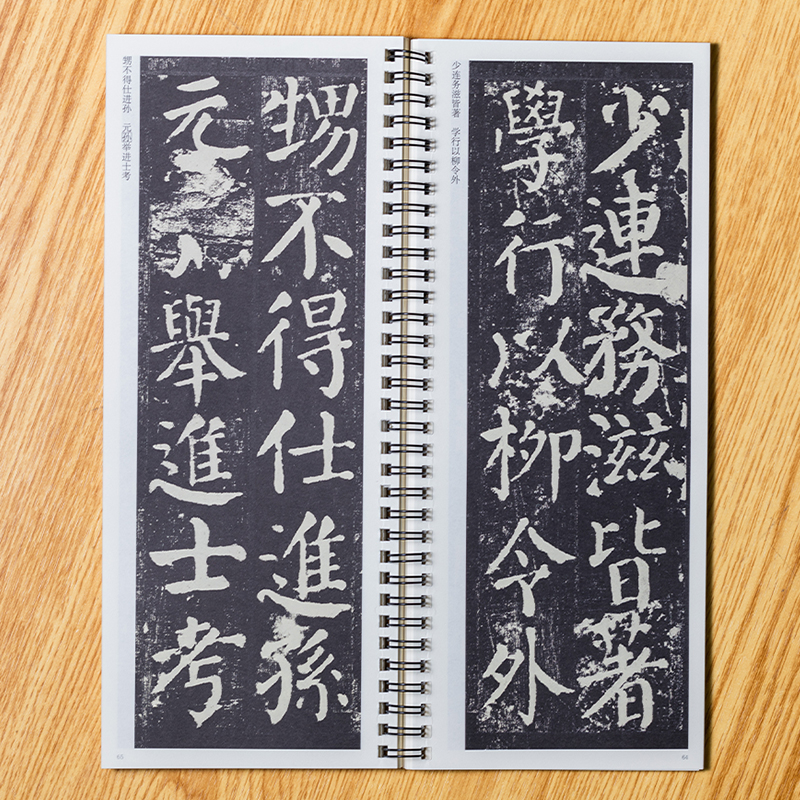 少連務滋皆著
學行以柳令外
少连务滋皆著 学行以柳令外
64
甥不得仕進孫
元舉進士考
甥不得仕进孙 元孙举进士考
65